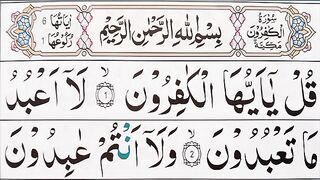 سُوْرَةُ الْكٰفِرُوْنَ مَكِّيَّةٌ
بِسْمِ اللّٰهِ الرَّحْمٰنِ الرَّحِيْمِ
اٰيَاتُهَا ٦ رُكُوْعُهَا ١
قُلْ يٰٓاَيُّهَا الْكٰفِرُوْنَ ۙ 1 لَاۤ اَعْبُدُ
مَا تَعْبُدُوْنَ ۙ 2 وَلَاۤ اَنْتُمْ عٰبِدُوْنَ